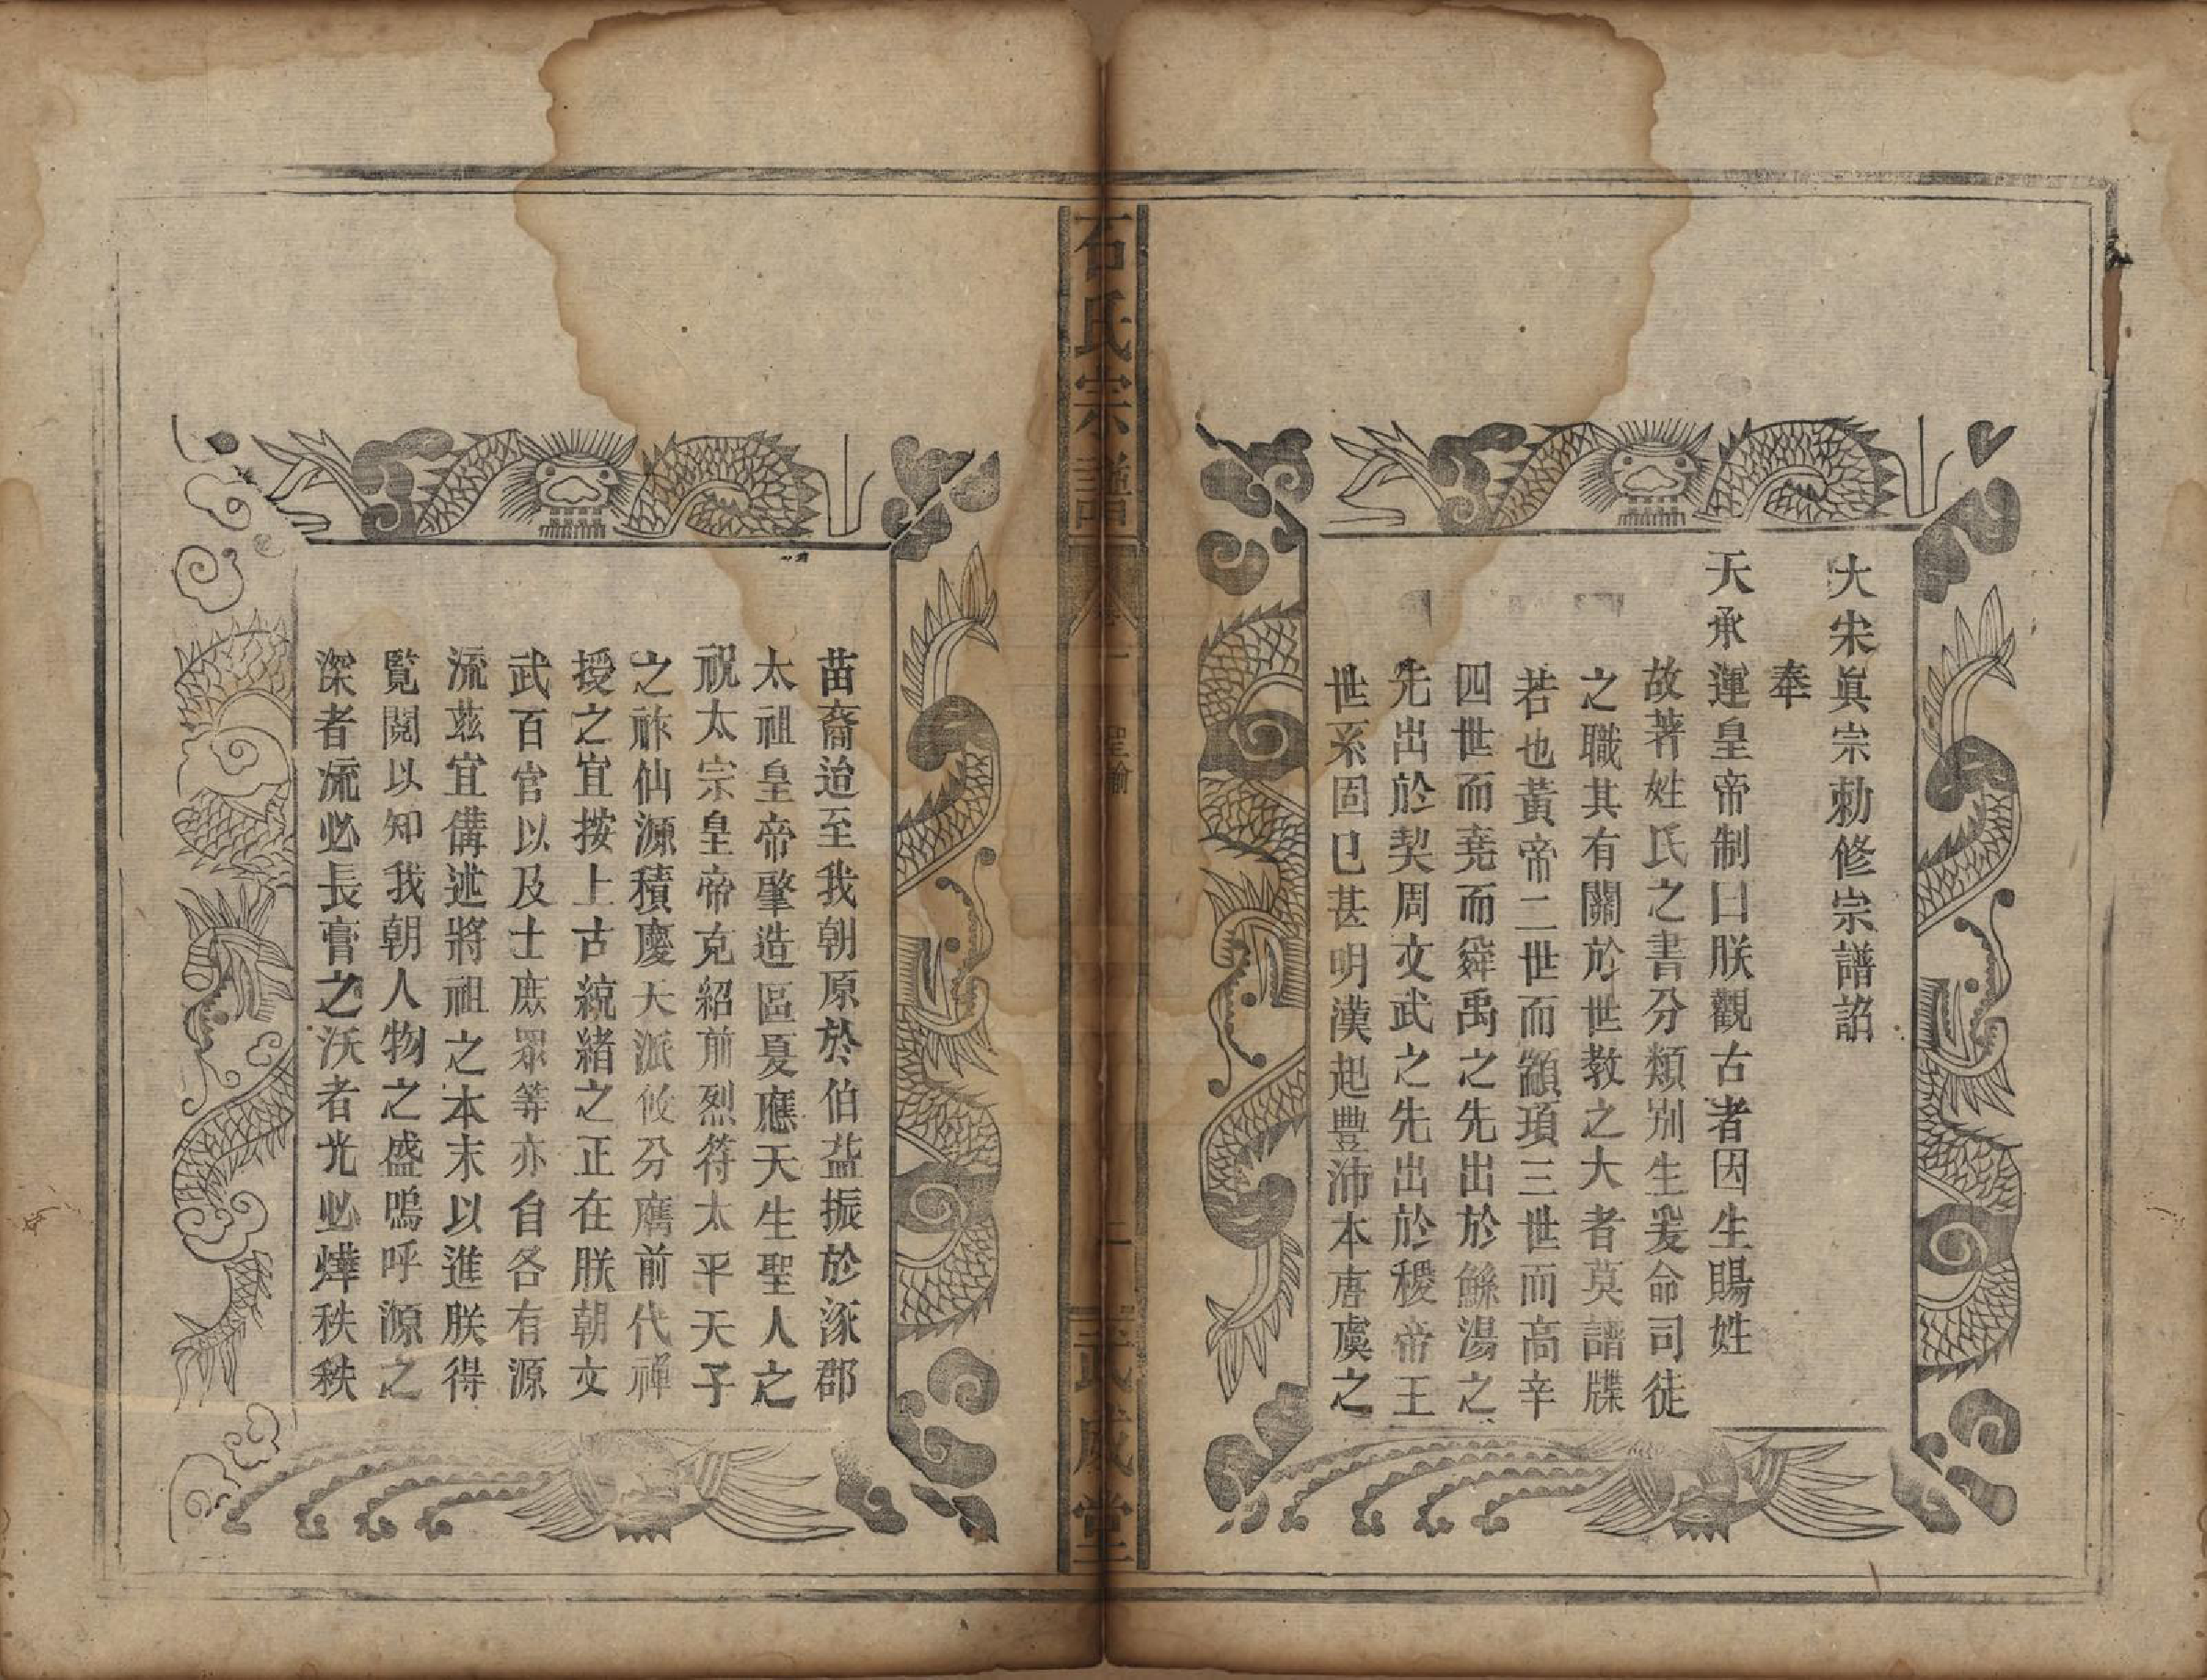 大宋眞宗勅修宗譜詔
奉
天承運皇帝制曰朕觀古者因生賜姓
故著姓氏之書分類別生爰命司徒
之職其有關於世教之大者莫譜牒
若也黃帝二世而顓頊三世而高辛
四世而堯而舜禹之先出於鯀湯之
先出於契周文武之先出於稷帝王
世系固已甚明漢起豐沛本唐虞之
石氏宗譜
卷一
聖諭
二
武威堂
苗裔迨至我朝原於伯益振於涿郡
太祖皇帝肇造區夏應天生聖人之
祝太宗皇帝克紹前烈符太平天子
之祚仙源積慶天派攸分膺前代禪
授之宜按上古統緒之正在朕朝文
武百官以及士庶眾等亦自各有源
流茲宜備述將祖之本末以進朕得
覧閱以知我朝人物之盛嗚呼源之
深者流必長膏之沃者光必燁秩秩